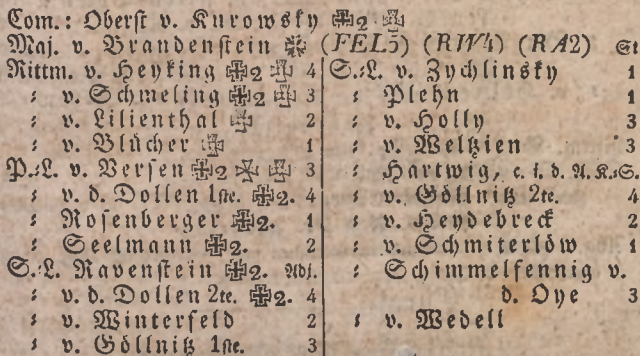 Com.: Oberst v. Kurowsky ✠2 ✠
Maj. v. Brandenstein ✠ (FEL5) (RW4) (RA2) St
Rittm. v. Heyking ✠2 ✠ 4
: v. Schmeling ✠2 ✠ 3
: v. Lilienthal ✠ 2
: v. Blücher ✠ 1
P.:L. v. Versen ✠2 ✠ ✠ 3
: v. d. Dollen 1ste. ✠2. 4
: Rosenberger ✠2. 1
: Seelmann ✠2. 2
S.:L. Ravenstein ✠2. Adj.
: v. d. Dollen 2te. ✠2. 4
: v. Winterfeld 2
: v. Göllnitz 1ste. 3
S.:L. v. Zychlinsky 1
: Plehn 1
: v. Holly 3
: v. Weltzien 3
: Hartwig, c. i. d. A. K.:S.
: v. Göllnitz 2te. 4
: v. Heydebreck 2
: v. Schmiterlöw 1
: Schimmelfennig v.
d. Oye 3
: v. Wedell